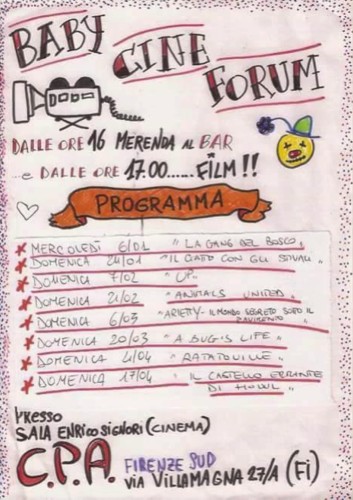 BABY
CINE
FORUM
DALLE ORE 16 MERENDA AL BAR
e DALLE ORE 17.00...... FILM!!
PROGRAMMA
MERCOLEDÌ 6/01 "LA GANG DEL BOSCO"
DOMENICA 24/01 "IL GATTO CON GLI STIVALI"
DOMENICA 7/02 "UP"
DOMENICA 21/02 "ANIMALS UNITED"
DOMENICA 6/03 "ARIETTY- IL MONDO SEGRETO SOTTO IL
PAVIMENTO"
DOMENICA 20/03 "A BUG'S LIFE"
DOMENICA 4/04 "RATATOUILLE"
DOMENICA 17/04 "IL CASTELLO ERRANTE
DI HOWL"
PRESSO
SALA ENRICO SIGNORI (CINEMA)
C.P.A. FIRENZE SUD
VIA VILLAMAGNA 27/A (FI)